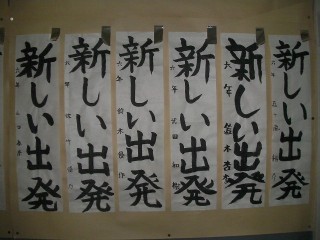 新しい出発
新しい出発
六年 鈴木
新しい出発
六年
新しい出発
六年
新しい出発
新しい出発